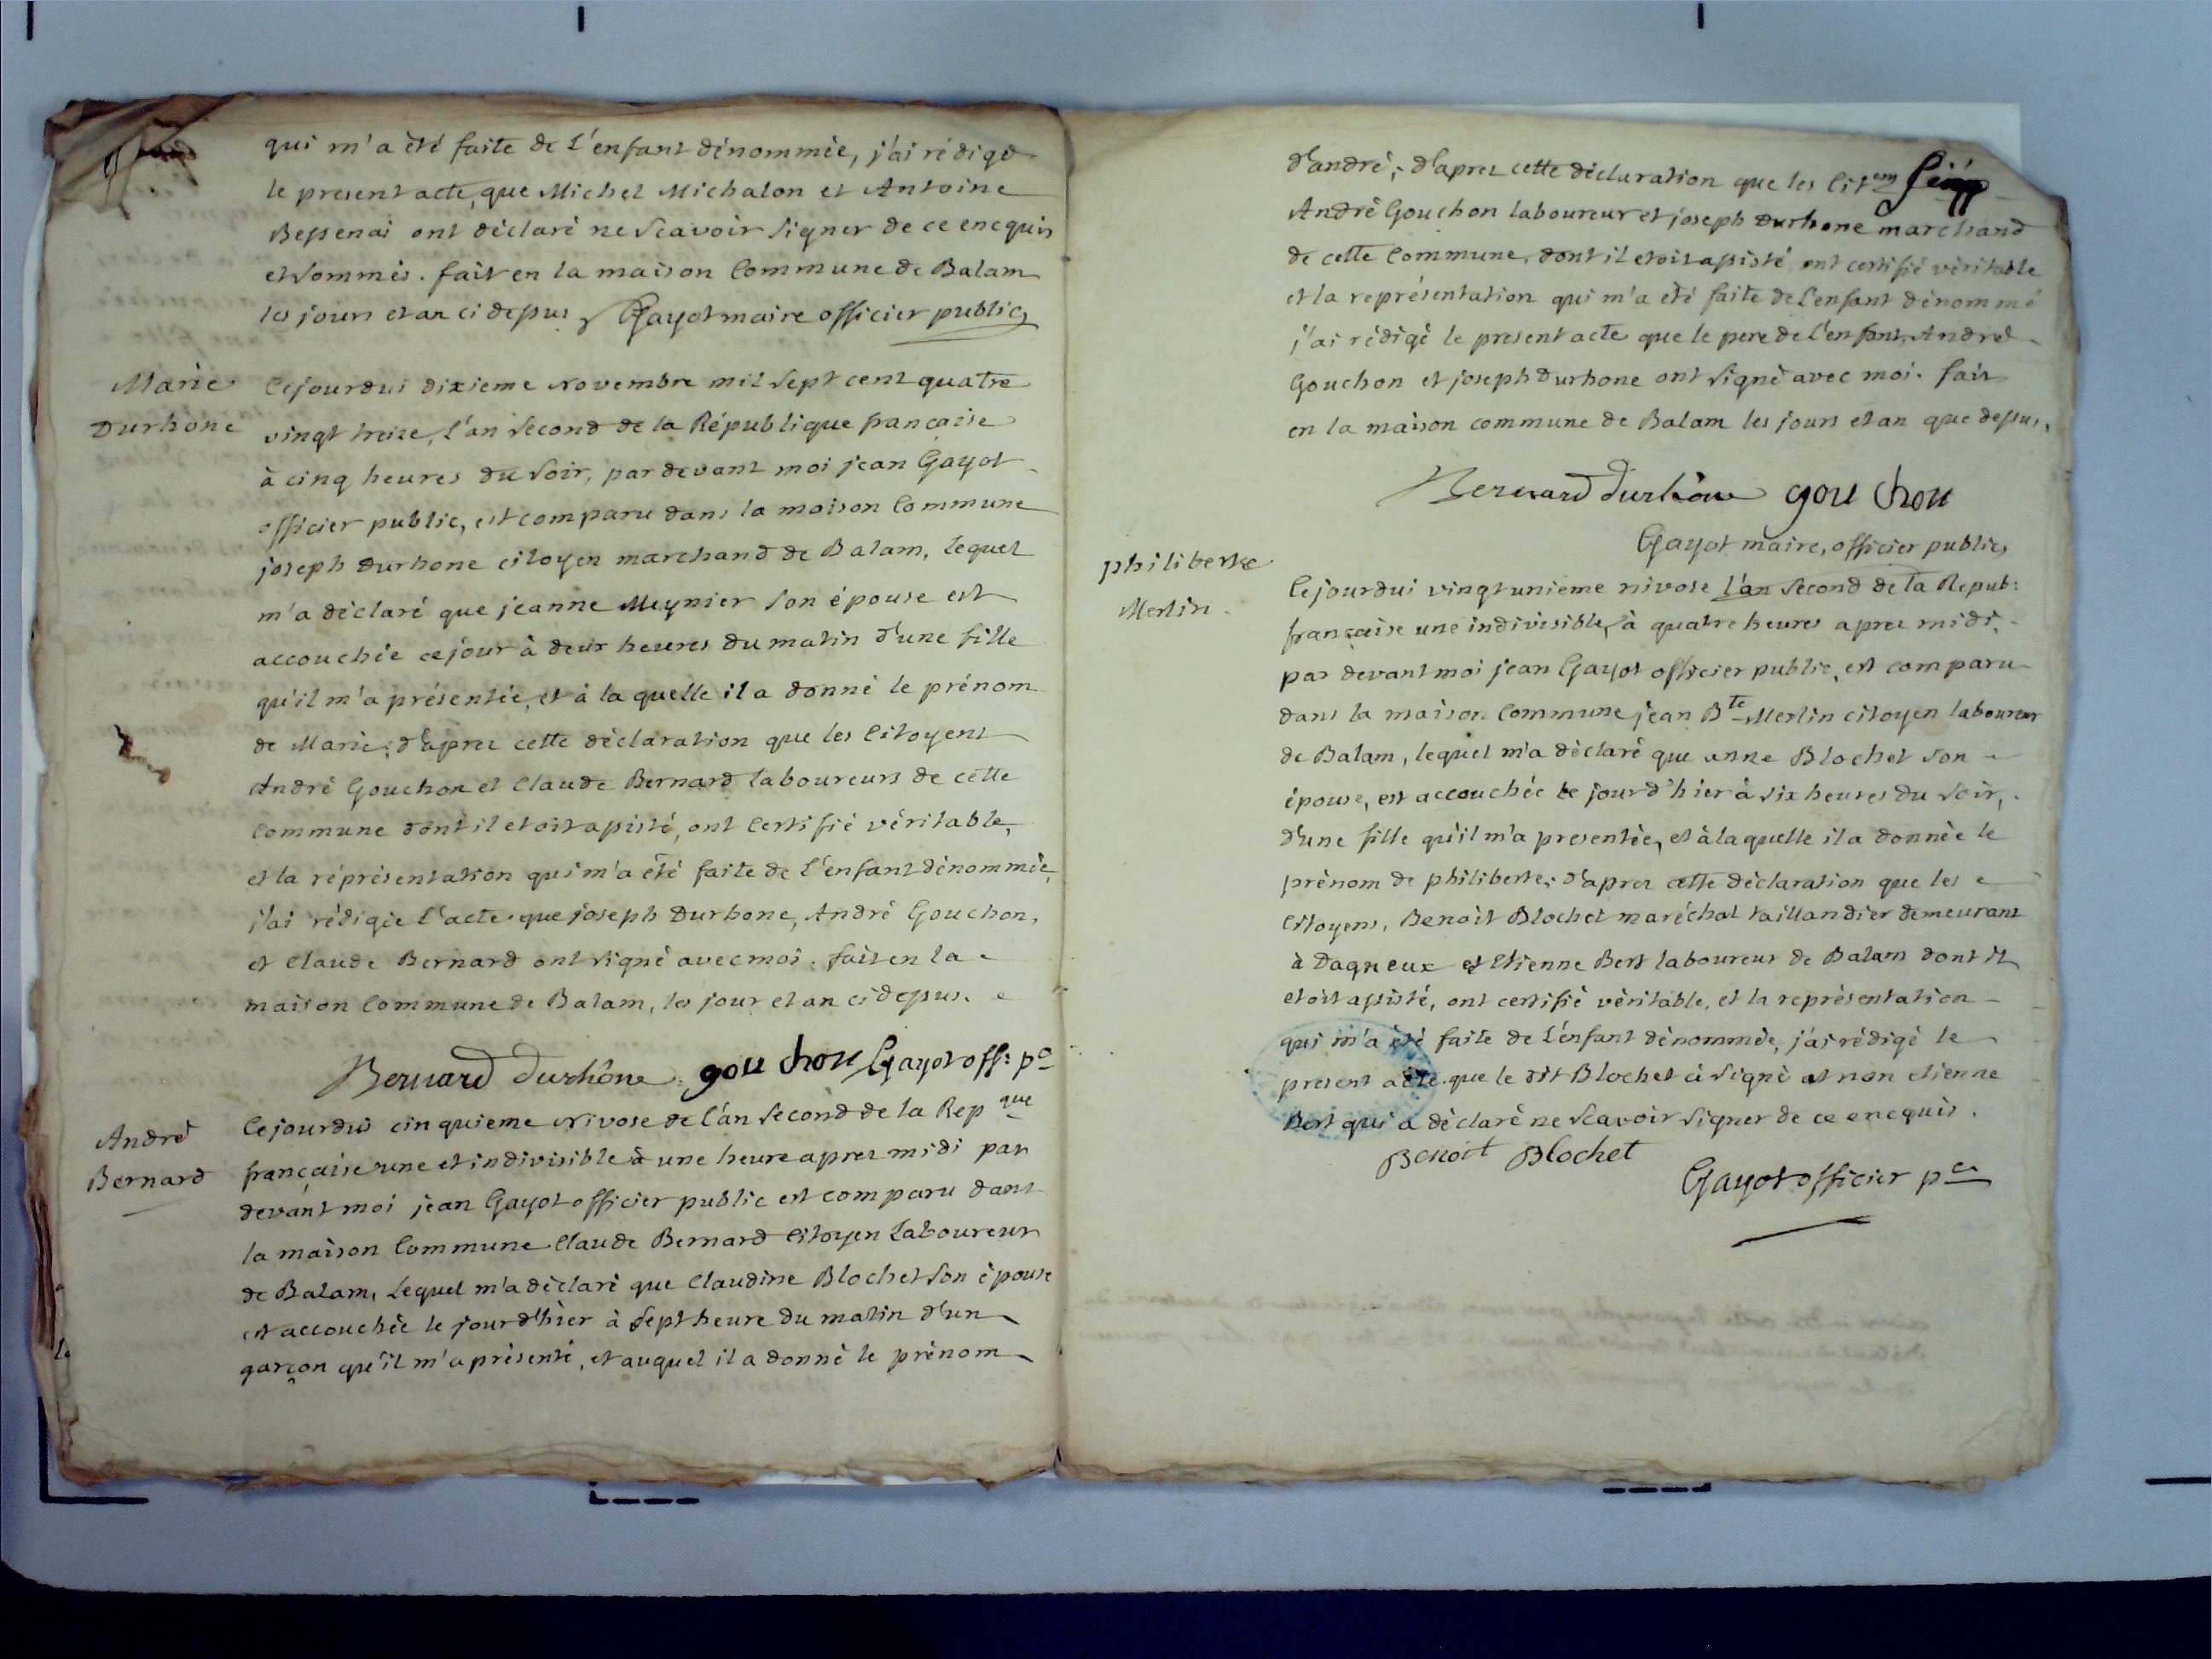 qui m'a été faite de l'enfant dénommée, j'ai rédigé
le present acte, que Michel Michalon et Antoine
Bessenai ont déclaré ne scavoir signer de ce encquis
et sommés. fait en la maison Commune de Balam
les jours et an ci dessus Gayot maire officier public
Marie
Durhône
Cejourdui dixieme novembre mil sept cent quatre
vingt treize, l'an second de la République française
à cinq heures du soir, par devant moi jean Gayot
officier public, est comparu dans la maison Commune
joseph durhone citoyen marchand de Balam, lequel
m'a déclaré que jeanne Meynier son épouse est
accouchée ce jour à deux heures du matin d'une fille
qu'il m'a présentée, et à laquelle il a donné le prénom
de Marie; d'aprez cette déclaration que les Citoyens
André Gouchon et Claude Bernard laboureurs de cette
Commune dont il etoit assisté, ont certifié véritable,
et la réprésentation qui m'a été faite de l'enfant dénommée,
j'ai rédigée l'acte que joseph Durhone, André Gouchon,
et Claude Bernard ont signé avec moi. fait en la
maison Commune de Balam, les jour et an ci dessus.
Bernard durhône gouchon Gayot off: pc
André
Bernard
Cejourdui cinquieme nivose de l'an second de la Repque
française une et indivisible à une heure aprez midi par
devant moi jean Gayot officier public est comparu dans
la maison Commune Claude Bernard Citoyen Laboureur
de Balam, Lequel m'a déclaré que Claudine Blochet son épouse
est accouchée le jour d'hier à sept heure du matin d'un
garçon qu'il m'a présenté, et auquel il a donné le prénom
d'andré; d'aprez cette déclaration que les Citens
André Gouchon laboureur et joseph durhone marchand
de cette Commune, dont il etoit assisté ont certifié véritable
et la représentation qui m'a été faite de l'enfant dénommé
j'ai rédigé le present acte que le pere de l'enfant, André
Gouchon et joseph Durhone ont signé avec moi. fait
en la maison commune de Balam les jours et an que dessus.
Bernard durhône gouchon
Gayot maire, officier public
philiberte
Merlin.
Cejourdui vingt unieme nivose l'an second de la Repub:
française une indivisible, à quatre heures aprez midi,
par devant moi jean Gayot officier public, est comparu
dans la maison Commune jean Bte Merlin citoyen laboureur
de Balam, lequel m'a déclaré que anne Blochet son
épouse, est accouchée le jourd'hier à six heures du soir,
d'une fille qu'il m'a presentée, et à laquelle il a donnée le
prénom de philiberte; d'aprez cette déclaration que les
Citoyens, Benoit Blochet maréchal taillandier demeurant
à Dagneux et Etienne Bert laboureur de Balam dont il
etoit assisté, ont certifié véritable, et la représentation
qui m'a été faite de l'enfant dénommée, j'ai rédigé le
present acte que le dit Blochet à signé et non etienne
Bert qui a déclaré ne scavoir signer de ce encquis.
Benoit Blochet
Gayot officier pc